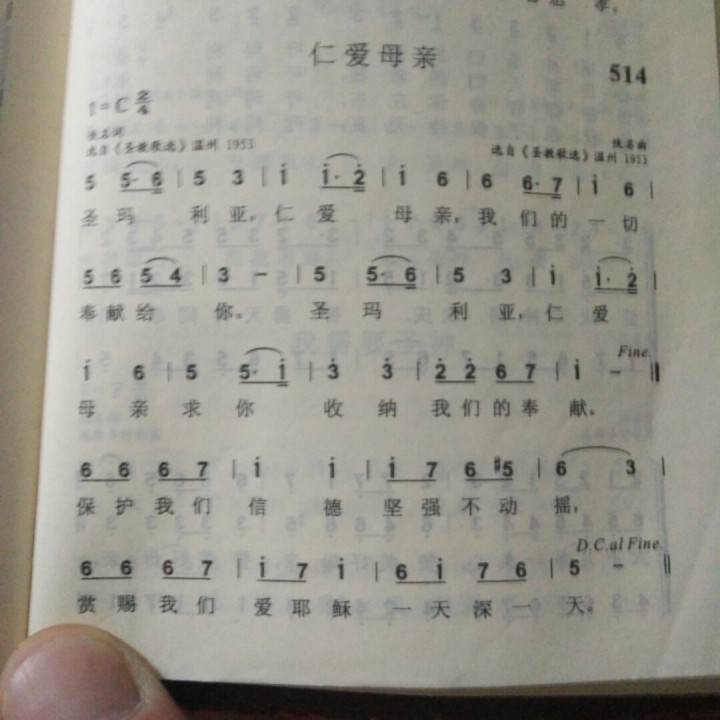 仁爱母亲
514
1=C 2/4
佚名词
选自《圣教歌选》温州 1953
佚名曲
选自《圣教歌选》温州 1953
5 5·6 | 5 3 | i i·2 | i 6 | 6 6·7 | i 6 |
圣玛 利亚,仁爱 母亲,我们的一切
5 6 5 4 | 3 - | 5 5·6 | 5 3 | i i·2 |
奉献给 你。 圣玛 利亚,仁爱
Fine.
i 6 | 5 5·i | 3 3 | 2 2 6 7 | i -
母亲求你 收纳 我们的奉献。
6 6 6 7 | i i | i 7 6 #5 | 6 3 |
保护我们 信德 坚强不动摇,
D.C.al Fine.
6 6 6 7 | i 7 i | 6 i 7 6 | 5 -
赏赐我们 爱耶稣 一天深一天。